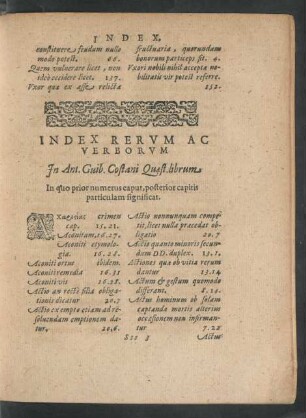 INDEX.
constituere feudum nullo
modo potest. 66.
Quem vulnerare licet, non
ideò occidere licet. 157.
Vxor quæ ex asse relicta
fructuaria, quorundam
bonorum particeps sit. 4.
Vxori nobili nihil accepta nobilitatis
vir potest referre.
152.
INDEX RERVM AC
VERBORVM
In Ant. Guib. Costani Quæst. librum
In quo prior numerus caput, posterior capitis
particulam significat.
crimen
cap. 15.21.
Aconitum. 16.27.
Aconiti etymologia.
16.28.
Aconiti ortus ibidem.
Aconiti remedia 16.31
Aconiti vis 16.28
Actio an rectè filia obligationis
dicatur 20.7
Actio ex empto etiam ad resoluendam
emptionem datur.
20.6.
Actio nonnunquam competit,
licet nulla præcedat obligatio
20.7
Actio quanti minoris secundum
DD. duplex. 13.1.
Actiones quæ ob vitia rerum
dantur 13.14
Actum & gestum quomodo
differant. 8.24.
Actus hominum ob solam
captandæ mortis alterius
occasionem non infirmantur
7.28
Actus